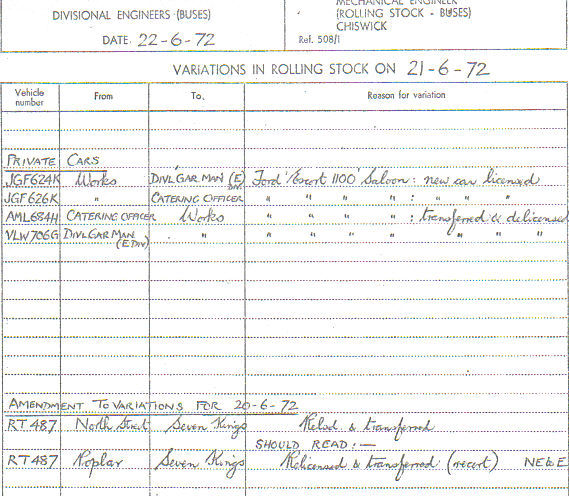 DIVISIONAL ENGINEERS (BUSES)
DATE 22-6-72
MECHANICAL ENGINEER
(ROLLING STOCK - BUSES)
CHISWICK
Ref. 508/1
VARIATIONS IN ROLLING STOCK ON 21-6-72
Vehicle number From To. Reason for variation
PRIVATE CARS
JGF624K Works DIVL GAR MAN (E DIV) Ford 'Escort 1100' Saloon: new car licensed
JGF626K " CATERING OFFICER " " " " : " " "
AML684H CATERING OFFICER Works " " " " : transferred & delicensed
VLW706G DIVL GAR MAN (E DIV) " " " " " " " "
AMENDMENT TO VARIATIONS FOR 20-6-72
RT487 North Street Seven Kings Relsd & transferred
SHOULD READ:—
RT487 Poplar Seven Kings Relicensed & transferred (recert) NE to E